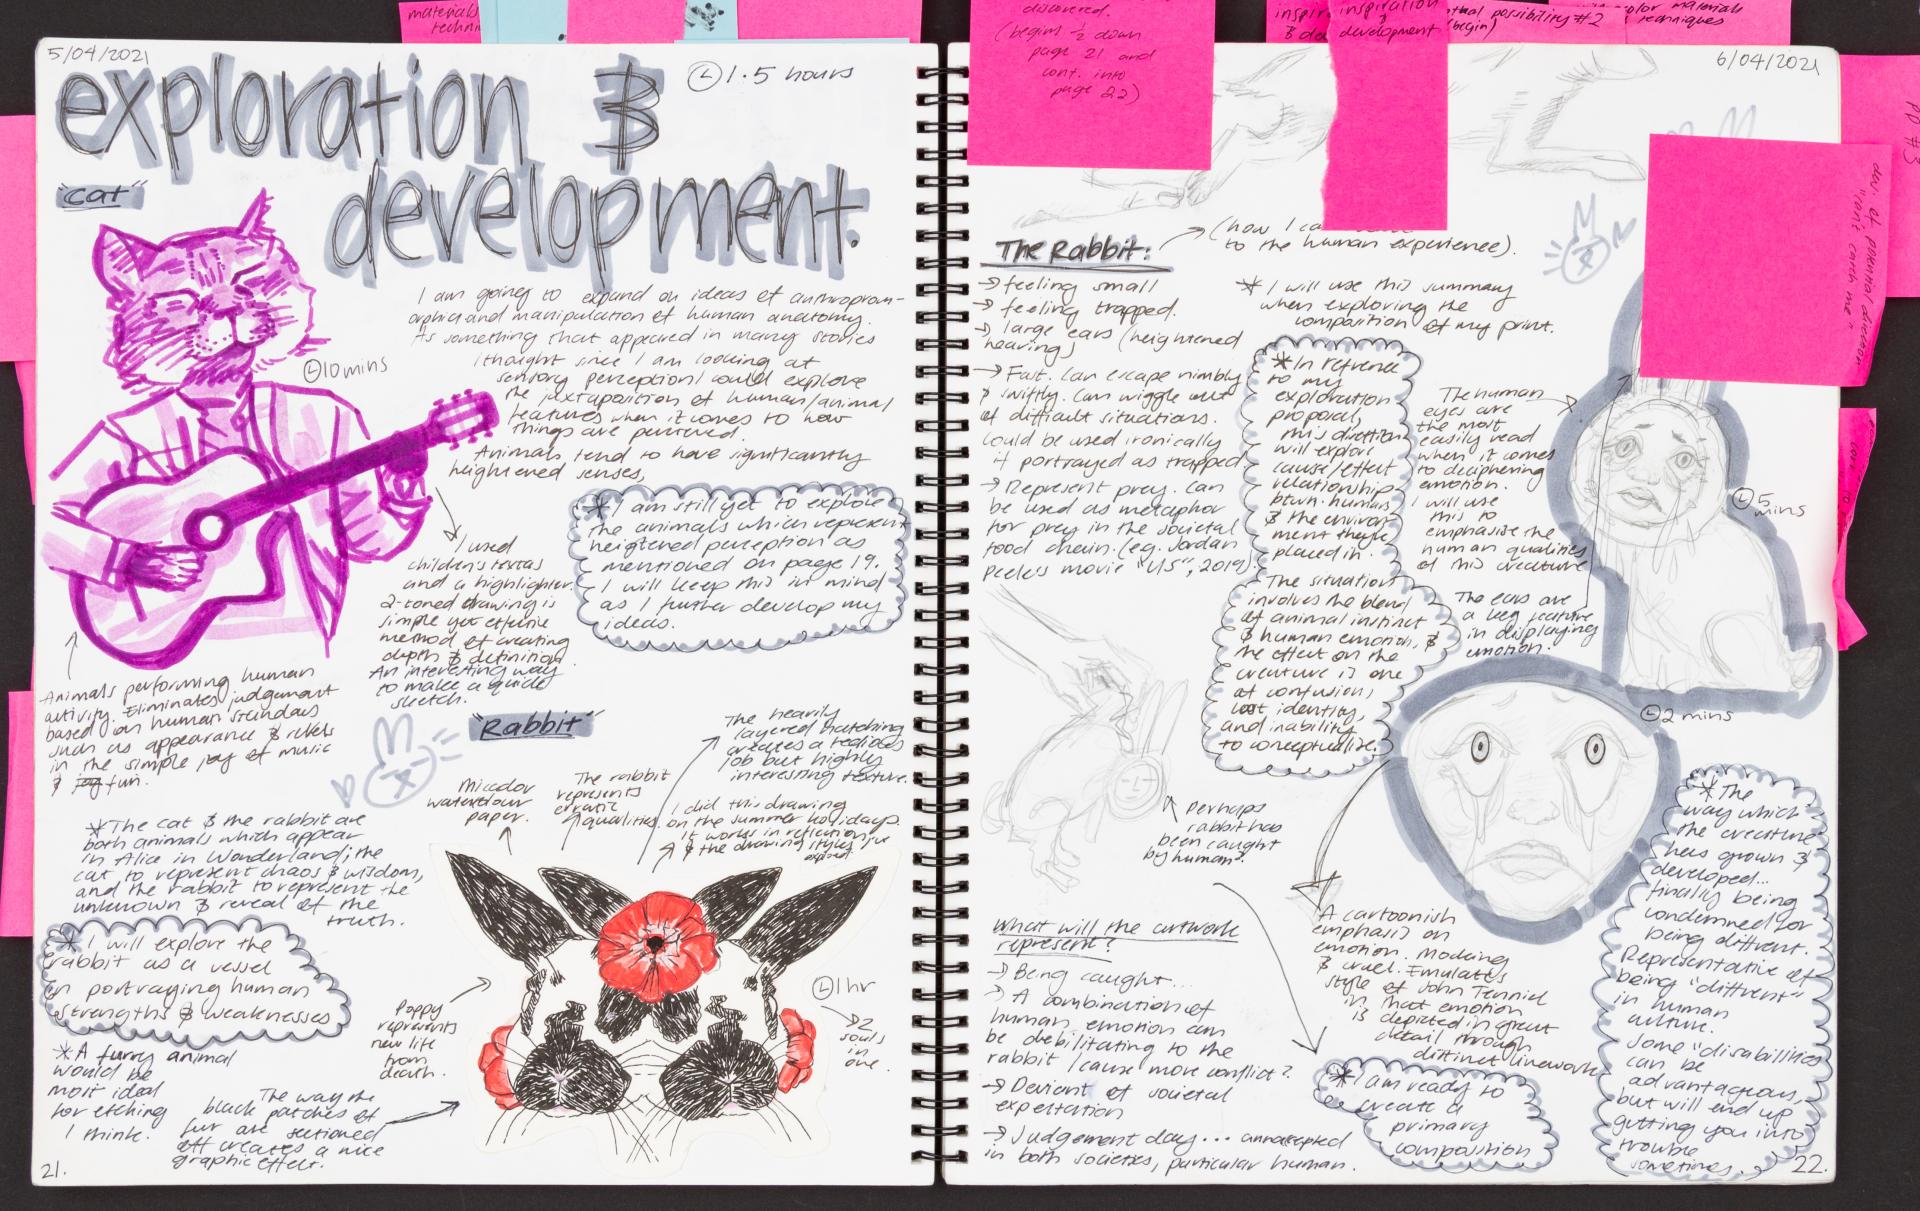 materials
discovered.
(begins ½ down
page 21 and
cont. into
page 22)
inspiration
development
possibility #2
(begin)
color materials
techniques
5/04/2021
exploration &
development.
1.5 hours
"cat"
10 mins
I am going to expand on ideas of anthroprom-
orphic and manipulation of human anatomy.
As something that appeared in many stories
I thought since I am looking at
sensory perception I could explore
the juxtaposition of human/animal
features when it comes to how
things are perceived.
Animals tend to have significantly
heightened senses,
* I am still yet to explore
the animals which represent
heightened perception as
mentioned on page 19.
I will keep this in mind
as I further develop my
ideas.
I used
children's textas
and a highlighter.
2-toned drawing is
simple yet effective
method of creating
depth & definition.
An interesting way
to make a quick
sketch.
Animals performing human
activity. Eliminates judgement
based on human standards
such as appearance & revels
in the simple joy of music
& fun.
"Rabbit"
The heavily
layered hatching
creates a tedious
job but highly
interesting texture.
Micador
watercolour
paper.
The rabbit
represents
erratic
qualities.
I did this drawing
on the summer holidays.
It works in reflection
& the drawing styles I've
explored
* The cat & the rabbit are
both animals which appear
in Alice in Wonderland; the
cat to represent chaos & wisdom,
and the rabbit to represent the
unknown & reveal of the
truth.
* I will explore the
rabbit as a vessel
in portraying human
strengths & weaknesses
* A furry animal
would be
most ideal
for etching
I think.
The way the
black patches of
fur are sectioned
off creates a nice
graphic effect.
Poppy
represents
new life
from
death.
1 hr
2
souls
in
one.
21.
6/04/2021
The Rabbit:
(how I
to the human experience).
→ feeling small
→ feeling trapped.
→ large ears (heightened
hearing)
→ Fast. Can escape nimbly
& swiftly. Can wiggle out
of difficult situations.
Could be used ironically
if portrayed as trapped.
→ Represent prey. Can
be used as metaphor
for prey in the societal
food chain. (eg. Jordan
Peele's movie "US", 2019).
* I will use this summary
when exploring the
composition of my print.
* In reference
to my
exploration
proposal,
this direction
will explore
cause/effect
relationship
btwn. humans
& the environ
ment they're
placed in.
The situation
involves the blend
of animal instinct
& human emotion, &
the effect on the
creature is one
of confusion,
lost identity,
and inability
to conceptualize.
The human
eyes are
the most
easily read
when it comes
to deciphering
emotion.
I will use
this to
emphasize the
human qualities
of this creature
The ears are
a key feature
in displaying
emotion.
5
mins
2 mins
Perhaps
rabbit has
been caught
by human?
What will the artwork
represent?
→ Being caught...
→ A combination of
human emotion can
be debilitating to the
rabbit / cause more conflict?
→ Deviant of societal
expectation
→ Judgement day... unaccepted
in both societies, particular human.
A cartoonish
emphasis on
emotion. Mocking
& cruel. Emulates
style of John Tenniel
in that emotion
is depicted in great
detail through
distinct linework
* I am ready to
create a
primary
composition
* The
way which
the creature
has grown &
developed...
finally being
condemned for
being diffrent.
Representative of
being "diffrent"
in human
culture.
Some "disabilities"
can be
advantageous,
but will end up
getting you into
trouble
sometimes.
22.
"can't catch me"